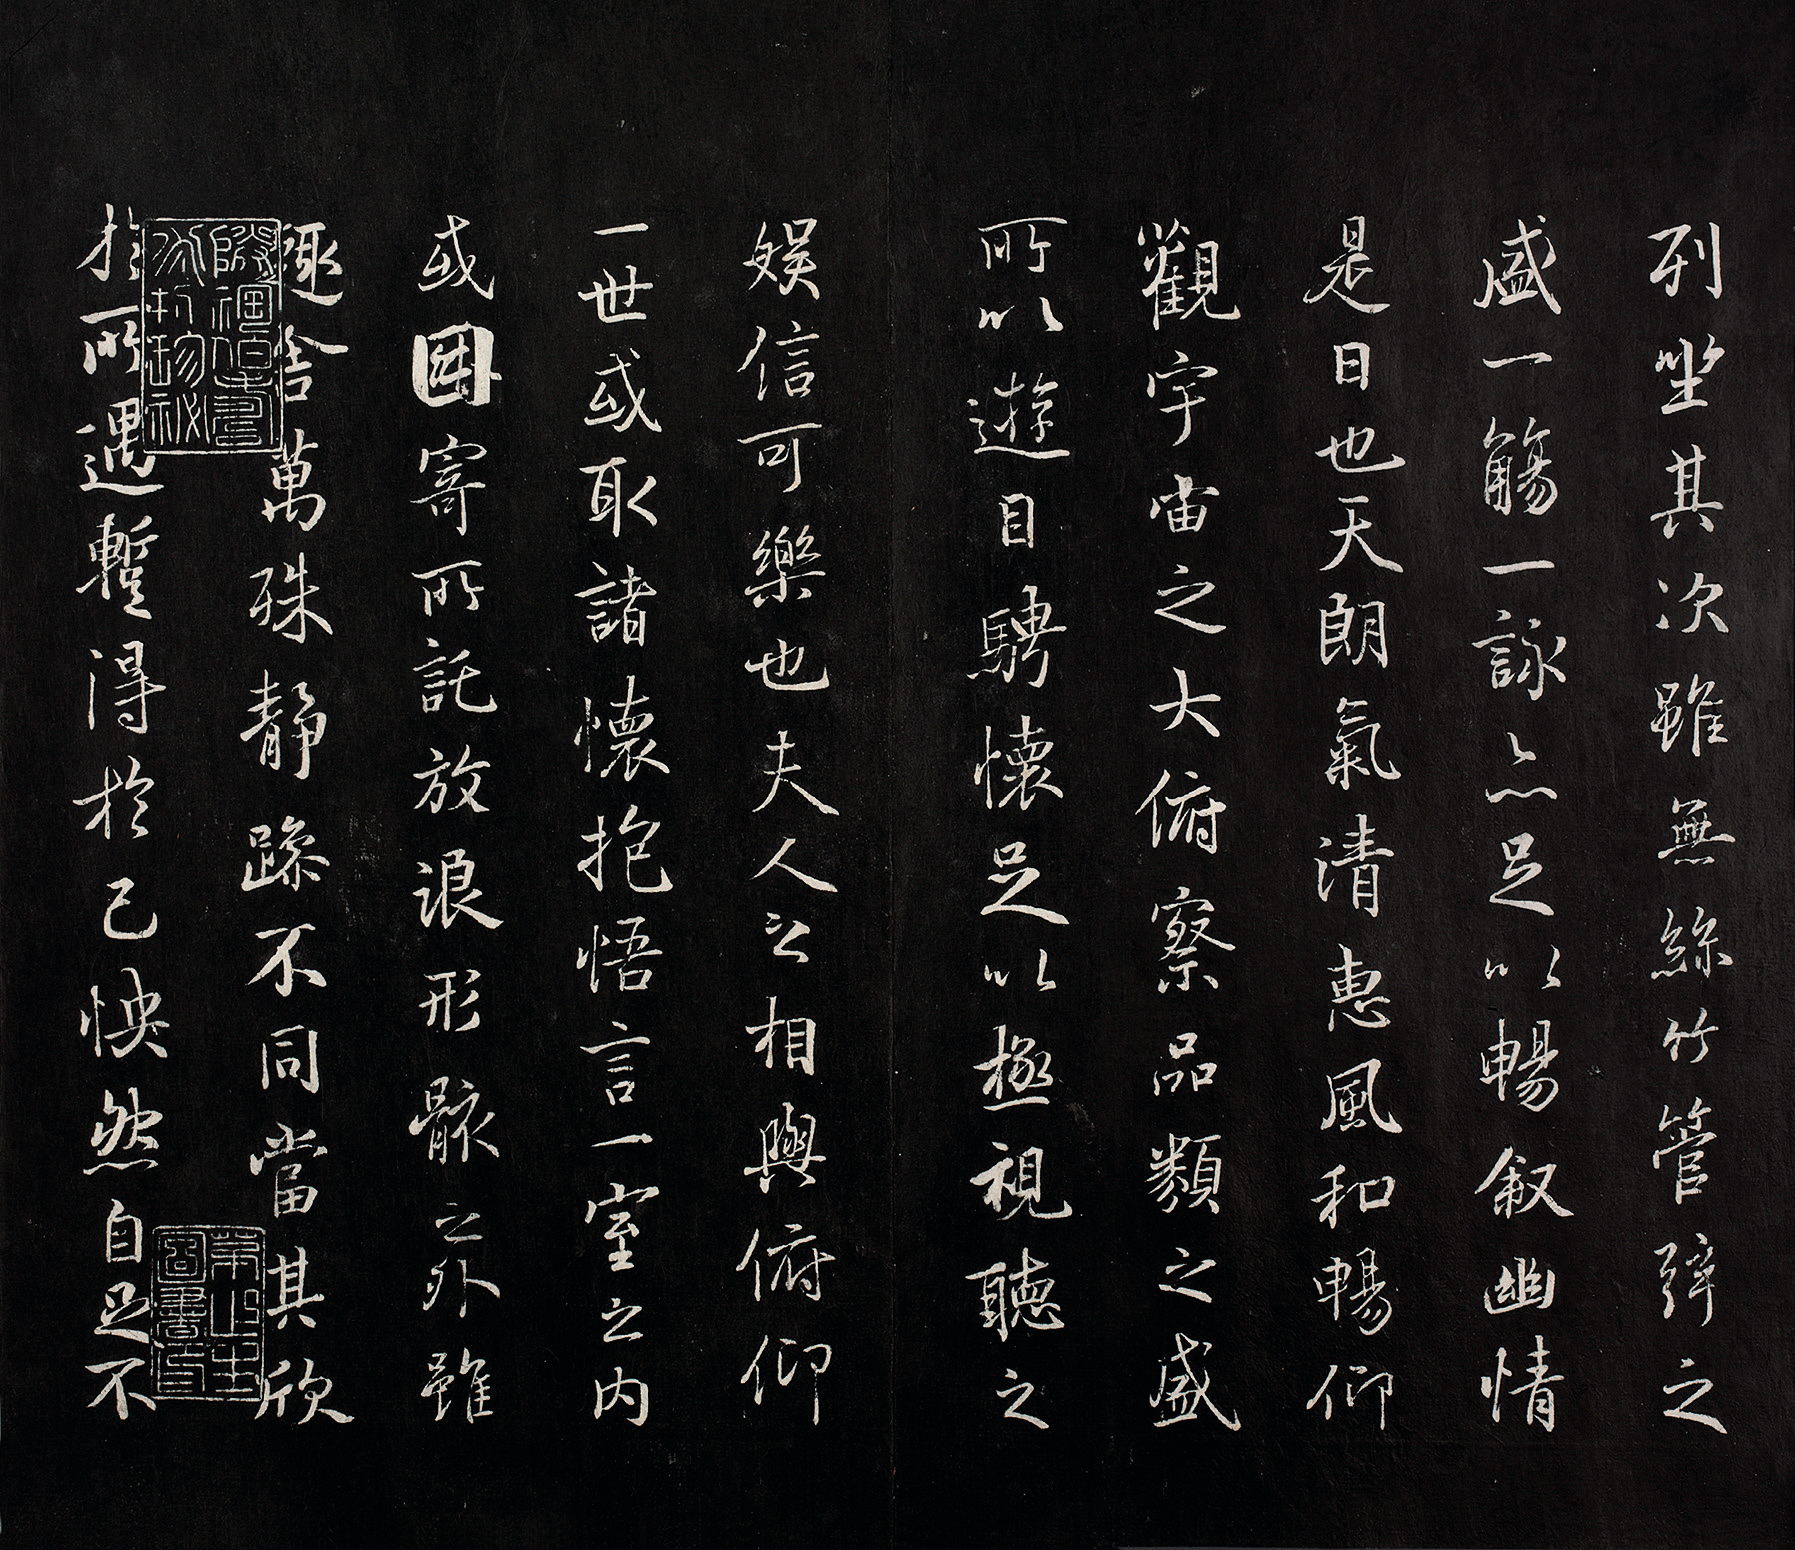 列坐其次雖無絲竹管弦之
盛一觴一詠亦足以暢叙幽情
是日也天朗氣清惠風和暢仰
觀宇宙之大俯察品類之盛
所以遊目騁懷足以極視聽之
娛信可樂也夫人之相與俯仰
一世或取諸懷抱悟言一室之內
或因寄所託放浪形骸之外雖
趣舍萬殊靜躁不同當其欣
於所遇暫得於己怏然自足不